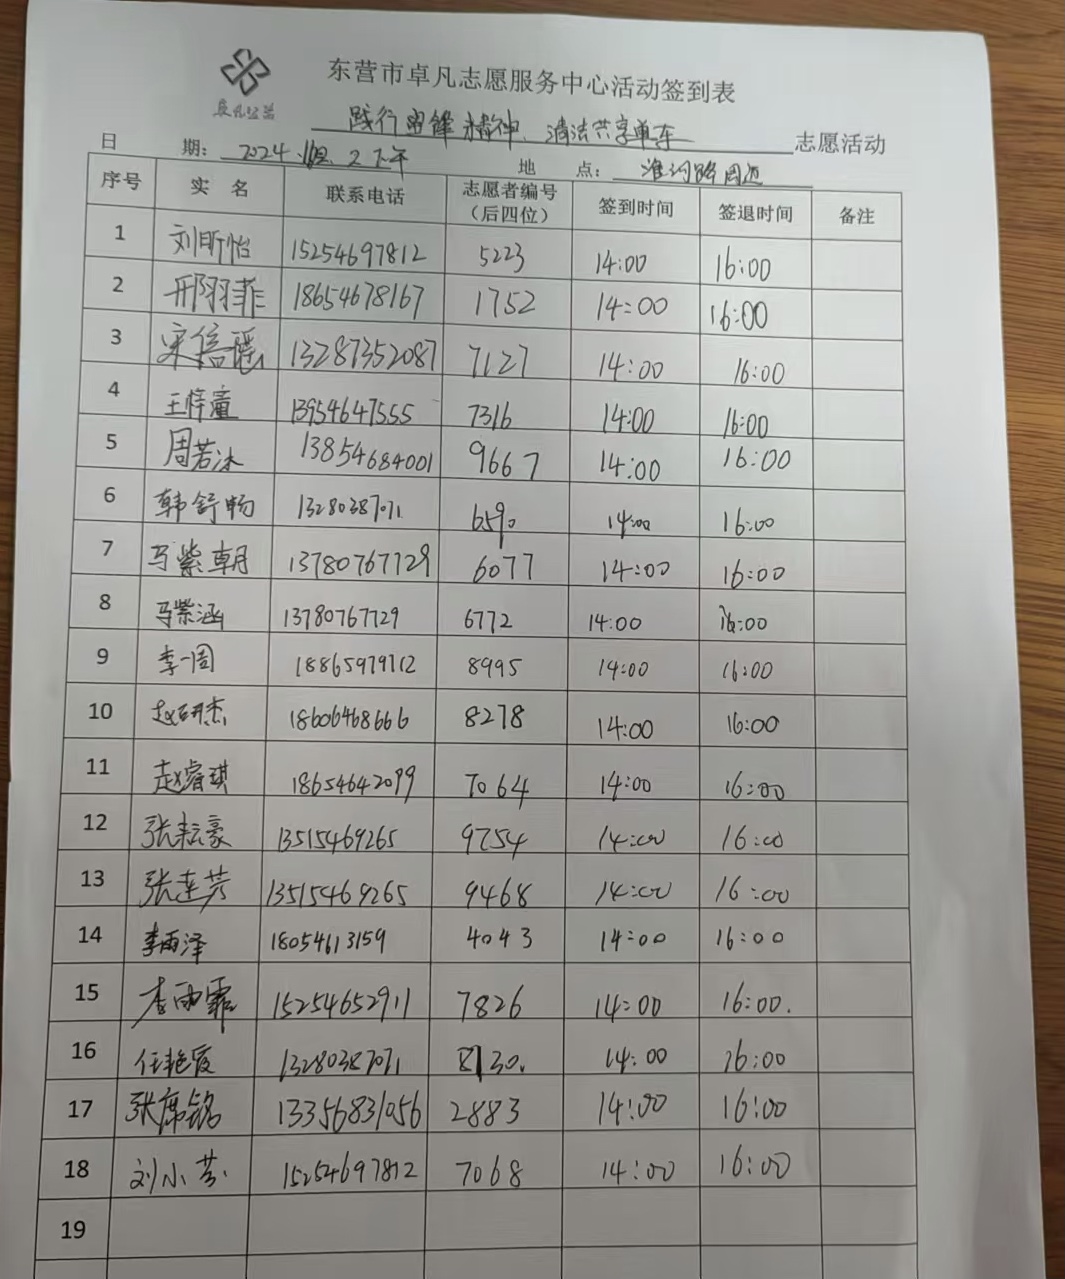 东营市卓凡志愿服务中心活动签到表
卓凡公益
践行雷锋精神、清洁共享单车 志愿活动
日 期: 2024. 2下午 地 点: 淮河路周边
序号 实 名 联系电话 志愿者编号（后四位） 签到时间 签退时间 备注
1 刘昕怡 15254697812 5223 14:00 16:00
2 邢羽菲 18654678167 1752 14:00 16:00
3 宋信瑶 13287352087 7127 14:00 16:00
4 王梓童 13954647555 7316 14:00 16:00
5 周若沐 13854684001 9667 14:00 16:00
6 韩舒畅 13280387071 6590 14:00 16:00
7 马紫朝 13780767729 6077 14:00 16:00
8 马紫涵 13780767729 6772 14:00 16:00
9 李一周 18865979712 8995 14:00 16:00
10 赵研杰 18606468666 8278 14:00 16:00
11 赵睿琪 18654642099 7064 14:00 16:00
12 张耘豪 13515469265 9754 14:00 16:00
13 张莲芳 13515469265 9468 14:00 16:00
14 李雨泽 18054613159 4043 14:00 16:00
15 李雨霏 15254652911 7826 14:00 16:00.
16 任艳霞 13280387071 8130. 14:00 16:00
17 张席铭 13356831056 2883 14:00 16:00
18 刘小芬 15254697812 7068 14:00 16:00
19